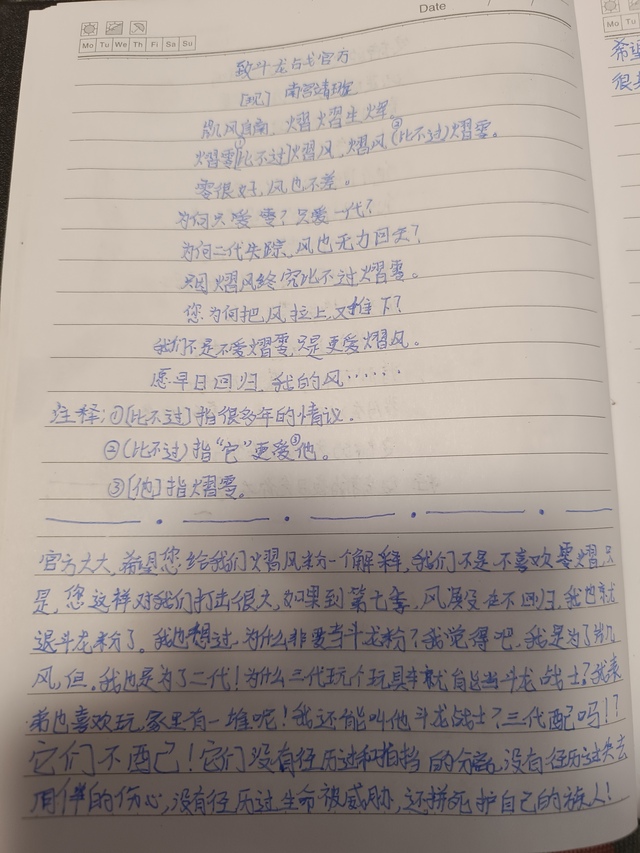 Date / /
Mo Tu We Th Fr Sa Su
致斗龙占戈官方
[现] 南宫
凯风自南，熠熠生辉。
熠雯①[比不过]熠风，熠风②(比不过)熠雯。
雯很好，风也不差。
为何只爱雯？只爱一代？
为何二代失踪，风也无力回天？
只因熠风终究比不过熠雯。
您为何把风拉上，又推下？
我们不是不爱熠雯，只是更爱熠风。
愿早日回归，我的风······
注释：①[比不过]指很多年的情议。
②(比不过)指“它”更爱③他。
③[他]指熠雯。
官方大大，希望您给我们熠风粉一个解释，我们不是不喜欢雯熠，只
是，您这样对我们打击很大，如果到第七季，风溟没在不回归，我也就
退斗龙粉了。我也想过，为什么非要当斗龙粉？我觉得吧，我是为了凯
风，但，我也是为了二代！为什么三代玩个玩具车就自能当斗龙战士？我表
弟也喜欢玩，家里有一堆呢！我还能叫他斗龙战士？三代配吗！？
它们不配！它们没有经历过和拍挡的分离，没有经历过失去
同伴的伤心，没有经历过生命被威胁，还拼死护自己的族人！
希望
很